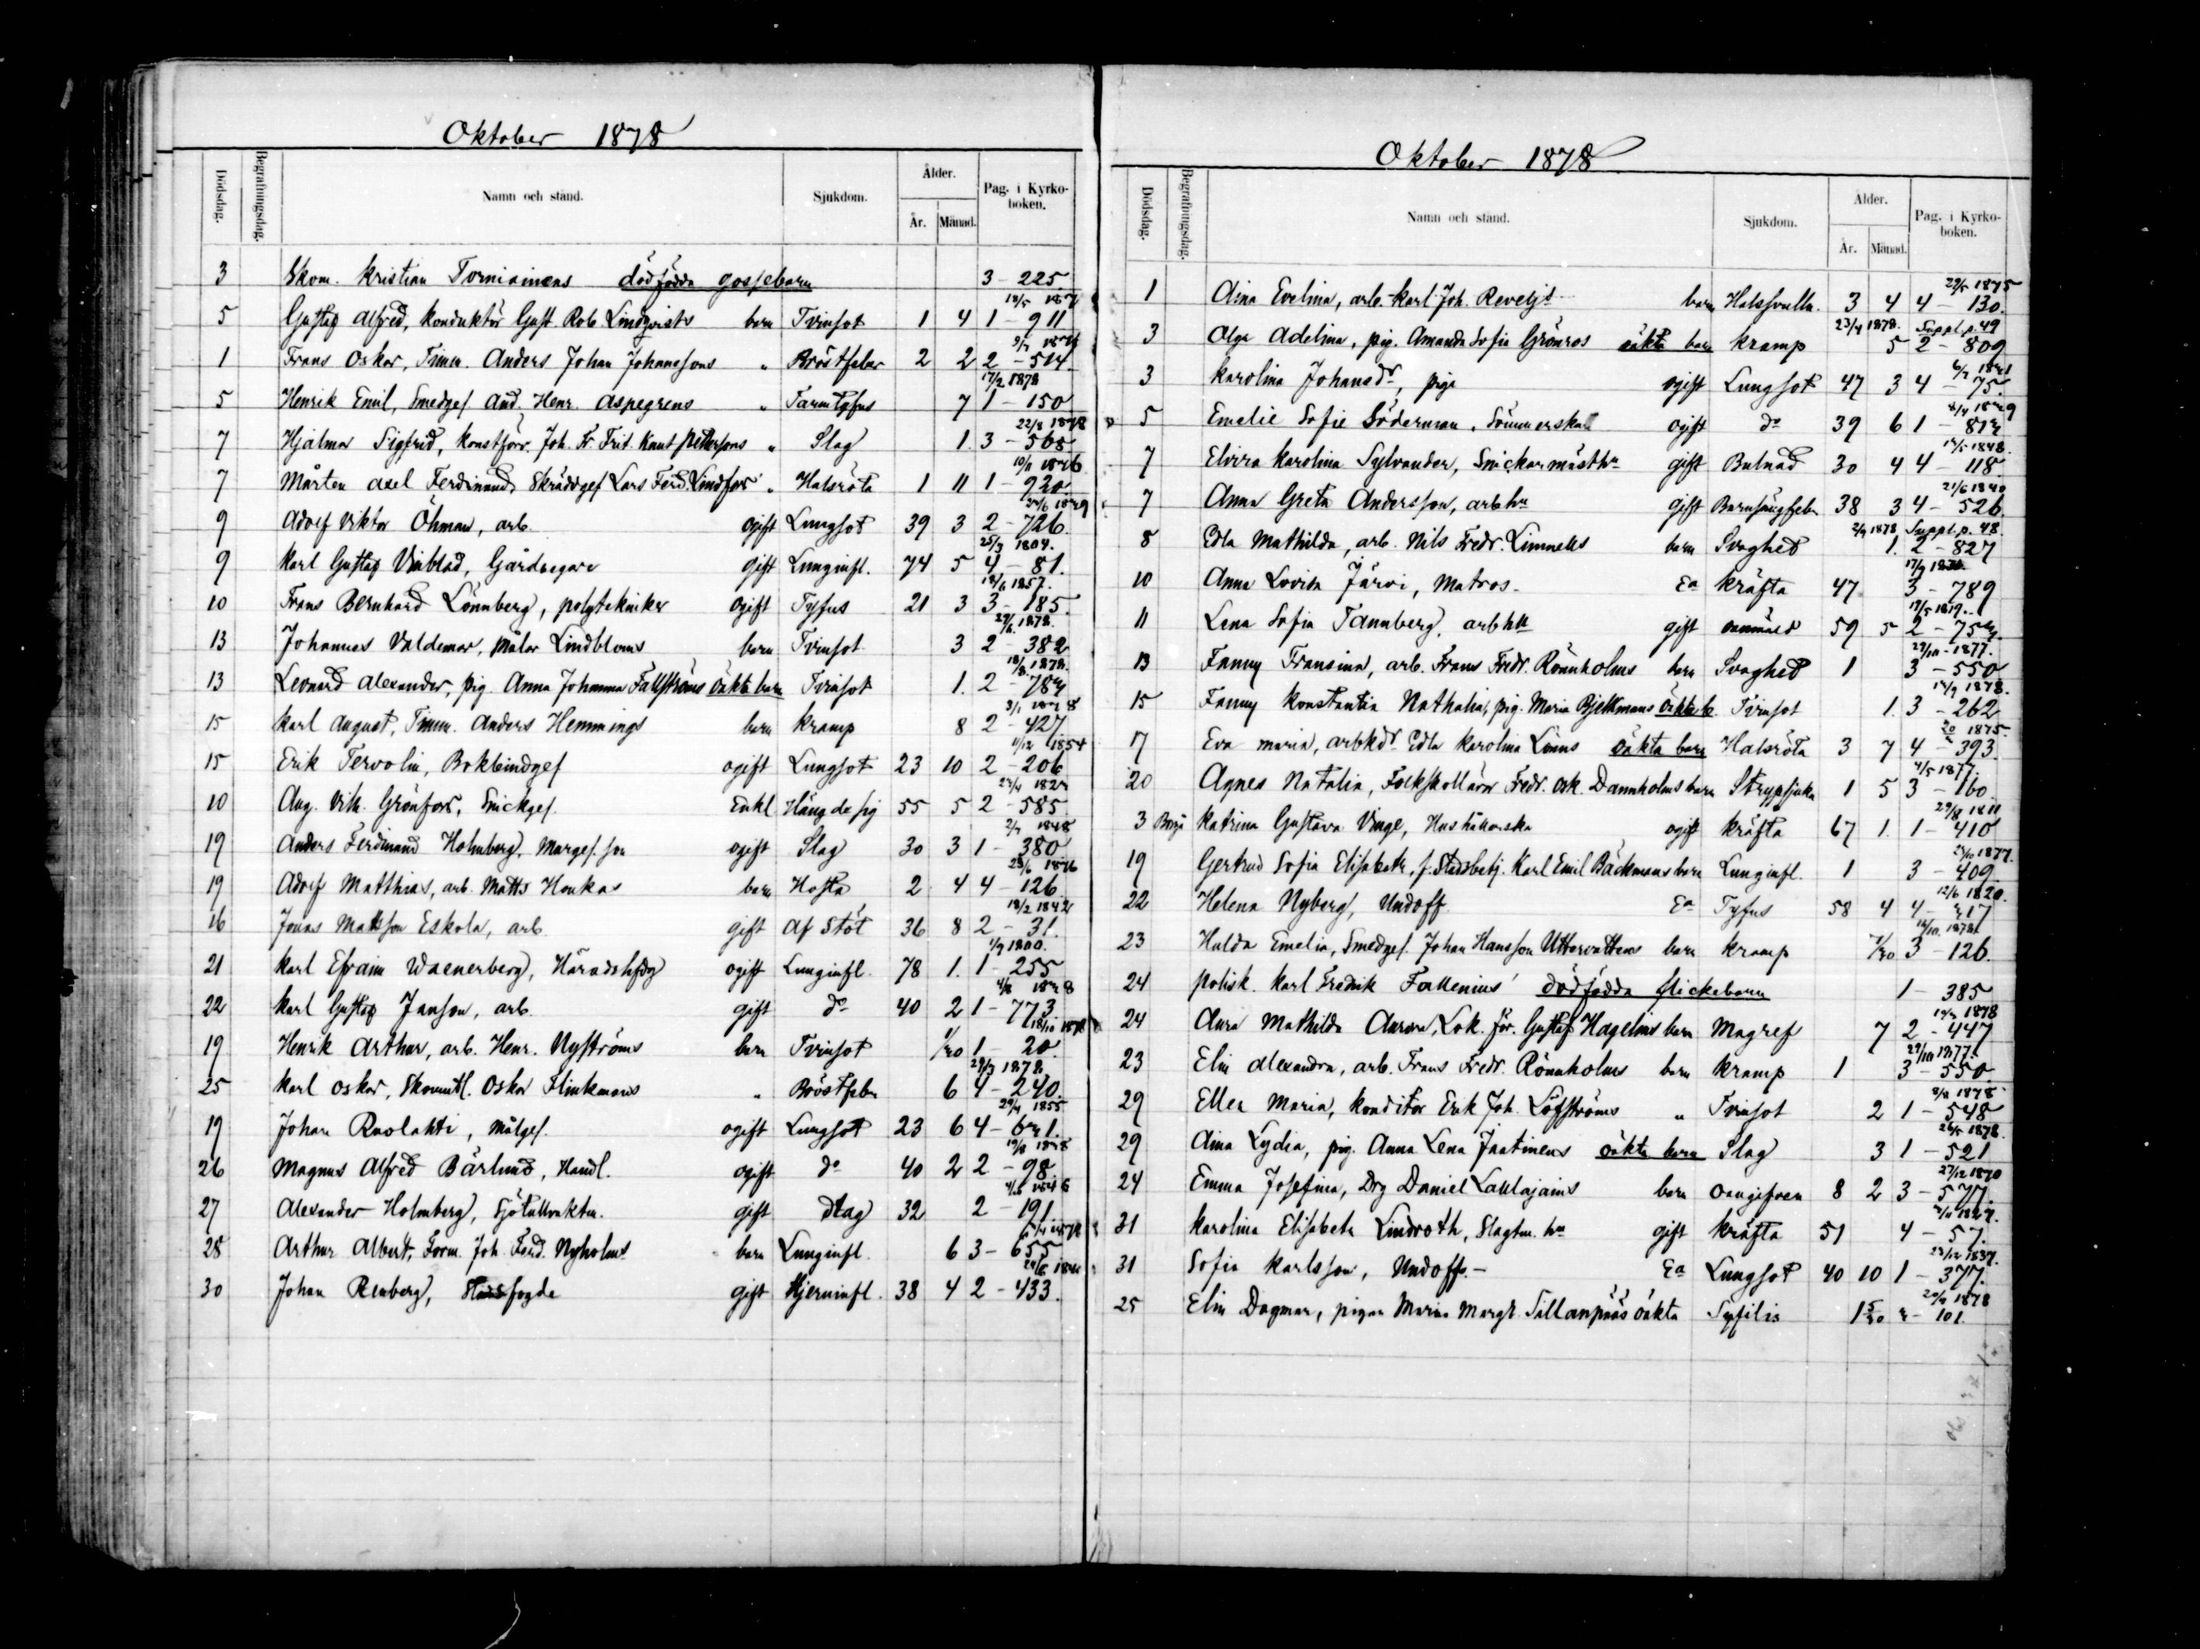 Oktober 1878
Dödsdag. Begrafningsdag. Namn och stånd. Sjukdom. Ålder. År. Månad. Pag. i Kyrkoboken.
3 Skom. Kristian Torniainens dödfödda gossebarn 3 - 225
5 Gustaf Alfred, Konduktör Gust. Rob. Lindqvists barn Tvinsot 1 4 1 - 911
1 Frans Oskar, Timm. Anders Johan Johanssons " Bröstfeber 2 2 2 - 514.
17/2 1878
5 Henrik Emil, Smedges And. Henr. Aspegrens " Tarmtyfus 7 1 - 150
22/8 1878
7 Hjalmar Sigfrid, Joh. Fr. Knut Pettersons " Slag 1. 3 - 568
10/11 1876
7 Mårten Axel Ferdinand, Skräddges Lars Ferd. Lindfors " Halsröta 1 11 1 - 920
9 Adolf Viktor Öhman, arb. ogift Lungsot 39 3 2 - 726.
25/3 1804.
9 Karl Gustaf Vinblad, Gårdsegare gift Lunginfl. 74 5 4 - 81.
18/6 1857.
10 Frans Bernhard Lönnberg, polytekniker ogift Tyfus 21 3 3 - 185.
1878.
13 Johannes Valdemar, Målar Lindbloms barn Tvinsot 3 2 - 382
1878.
13 Leonard Alexander, pig. Anna Johanna Fallströms oäkta barn Tvinsot 1. 2 - 784
15 Karl August, Timm. Anders Hemmings barn Kramp 8 2 - 427
11/12 1854
15 Erik Tervolin, Bokbindges ogift Lungsot 23 10 2 - 206
10 Aug. Vilh. Grönfors, Snickges. Enkl. Hängde sig 55 5 2 - 585
2/7 1848
19 Anders Ferdinand Holmberg, ogift Slag 30 3 1 - 380
1876
19 Adolf Matthias, arb. Matts Honkas barn Hosta 2 4 4 - 126
18/2 1842
16 Jonas Mattsson Eskola, arb. gift Af Stöt 36 8 2 - 31.
1/9 1800.
21 Karl Efraim Waenerberg, Häradshfdg ogift Lunginfl. 78 1. 1 - 255
22 Karl Gustaf Janson, arb. gift do 40 2 1 - 773
18/10 1878
19 Henrik Arthur, arb. Henr. Nyströms barn Tvinsot 1/30 1 - 20.
29/3 1878
25 Karl Oskar, Oskar Flinkmans " Bröstfeber 6 4 - 240.
29/4 1855
19 Johan Raolahti, Målges. ogift Lungsot 23 6 4 - 621.
26 Magnus Alfred Bärlund, Handl. ogift do 40 2 2 - 98.
27 Alexander Holmberg, Sjötullvaktm. gift Slag 32 2 - 191
28 Arthur Albert, Form. Joh. Ferd. Nyholms barn Lunginfl. 6 3 - 655
30 Johan Renberg, fogde gift Hjerninfl. 38 4 2 - 433.
Oktober 1878
Dödsdag. Begrafningsdag. Namn och stånd. Sjukdom. Ålder. År. Månad. Pag. i Kyrkoboken.
1875
1 Aina Evelina, arb.-karl Joh. barn Halssvulla. 3 4 4 - 130.
23/4 1878. Suppl. p. 49
3 Olga Adelina, pig. Amanda Sofia Grönros oäkta barn Kramp 5 2 - 809
3 Karolina Johansdr, piga ogift Lungsot 47 3 4 - 75.
5 Emelie Sofie Söderman, Sömmerska ogift do 39 6 1 - 812
1848.
7 Elvira Karolina Sylvander, Snickarmästhu gift Bulnad 30 4 4 - 118
21/6 1840
7 Anna Greta Andersson, arb.hu gift Barnsängsfeb. 38 3 4 - 526
2/9 1878 Suppl. p. 48.
8 Edla Mathilda, arb. Nils Fredr. Limnells barn Svaghet 1. 2 - 827
10 Anna Lovisa Järvi, Matros- Ea Kräfta 47 3 - 789
18/5 1819.
11 Lena Sofia Tannberg, arb.hu gift 59 5 2 - 754
29/10 - 1877.
13 Fanny Fransina, arb. Frans Fredr. Rönnholms barn Svaghet 1 3 - 550
1878.
15 Fanny Konstantia Nathalia, pig. Maria Bjelkmans oäkta b. Tvinsot 1. 3 - 262
1875.
17 Eva Maria, arbkdr Edla Karolina Linus oäkta barn Halsröta 3 7 4 - 393
4/5 1877.
20 Agnes Natalia, Folkskollärar Fredr. Osk. Dannholms barn Strypsjuka 1 5 3 - 160.
29/8 1811
3 Borgå Katrina Gustava Vinge, Hushållerska ogift Kräfta 67 1. 1 - 410
1877.
19 Gertrud Sofia Elisabeth, f. Stadsbetj. Karl Emil Bäckmans barn Lunginfl. 1 3 - 409.
12/6 1820.
22 Helena Nyberg, Undoff. Ea Tyfus 58 4 4 - 217
16/10 1878
23 Hulda Emelia, Smedges. Johan Hansson barn Kramp 7/30 3 - 126.
24 Polisk. Karl Fredrik Fallenius' dödfödda flickebarn 1 - 385
1878
24 Aura Mathilda Aurora, Lok. för. Gustaf Hagelins barn Magref 7 2 - 447
29/10 1877.
23 Elin Alexandra, arb. Frans Fredr. Rönnholms barn Kramp 1 3 - 550
8/8 1878
29 Ellen Maria, Konditor Erik Joh. Löfströms " Tvinsot 2 1 - 548
1878.
29 Aina Lydia, pig. Anna Lena Jaatinens oäkta barn Slag 3 1 - 521
27/12 1870
24 Emma Josefina, Drg Daniel barn oangifven 8 2 3 - 577.
31 Karolina Elisabeth Lindroth, Slagtm. hu gift Kräfta 51 4 - 57.
23/12 1837.
31 Sofia Karlsson, Undoff. - Ea Lungsot 40 10 1 - 377.
1878
25 Elin Dagmar, pigan Maria Margt. Sillanpääs oäkta Syfilis 1 5/30 2 - 101.